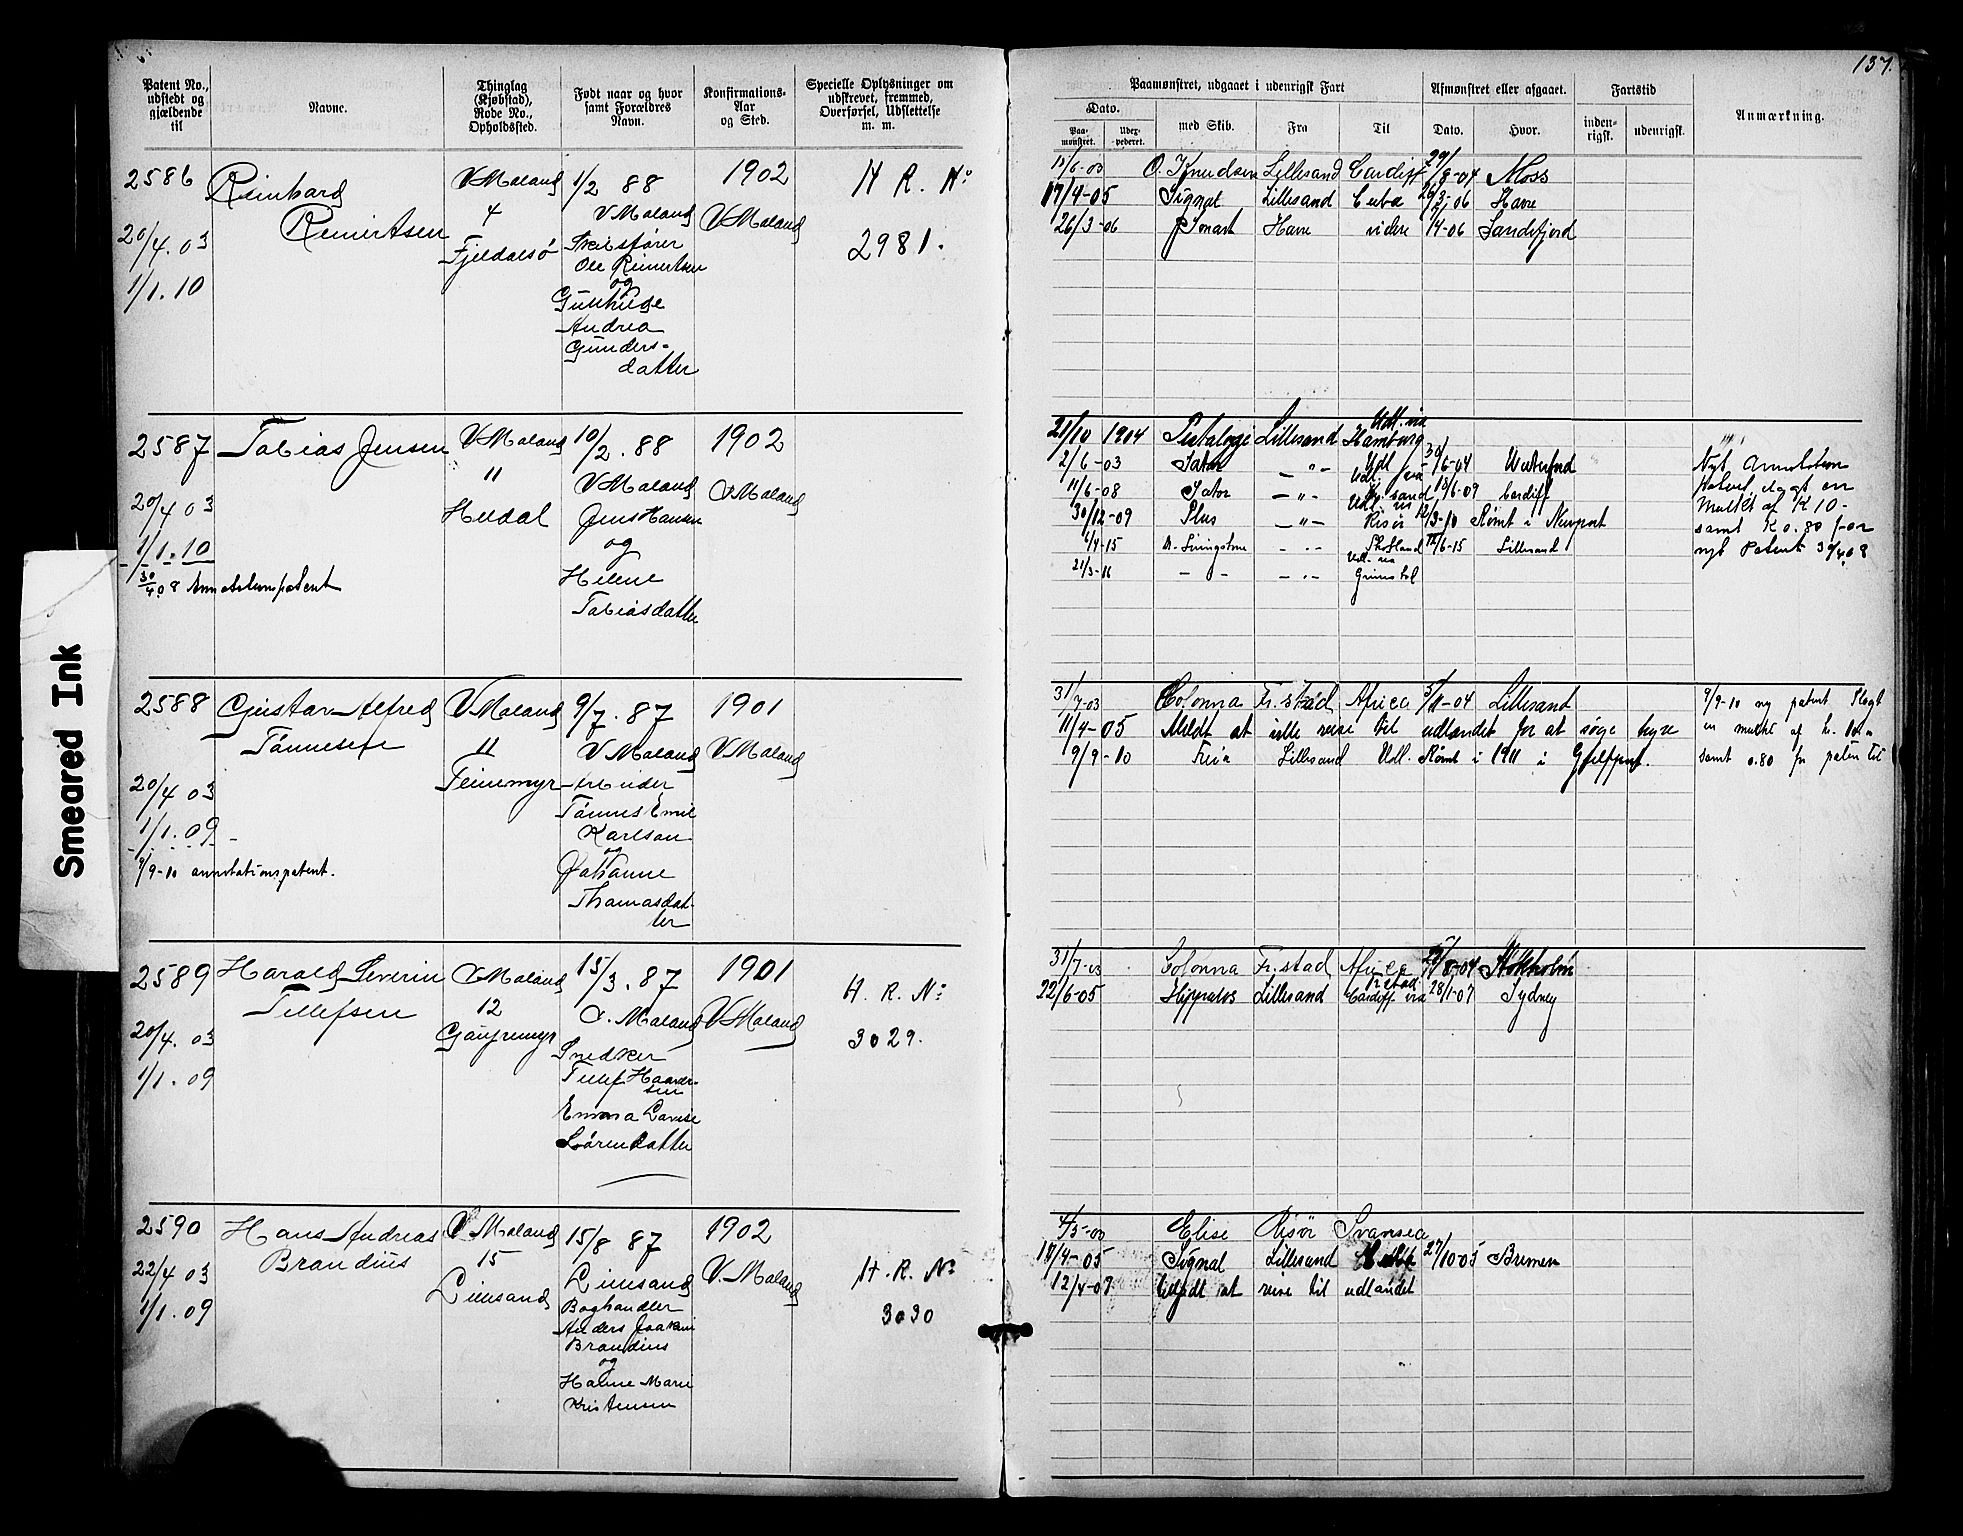 137.
Patent No., udstedt og gjældende til
Navne.
Thinglag (Kjøbstad), Rode No., Opholdssted.
Født naar og hvor samt Forældres Navn.
Konfirmations-Aar og Sted.
Specielle Oplysninger om udskrevet, fremmed, Overførsel, Udslettelse m. m.
Paamønstret, udgaaet i udenrigsk Fart
Dato.
Paa-mønstret.
Udex-pederet.
med Skib.
Fra
Til
Afmønstret eller afgaaet.
Dato.
Hvor.
Fartstid
inden-rigsk.
udenrigsk.
Anmærkning.
2586
Reinhard
Reinertsen
20/4.03
1/1.10
V Moland
4
Fjeldalsø
1/2 88
V Moland
Skibsfører
Ole Reinertsen
og
Gunhilde
Andrea
Gunders-
datter
1902
V Moland
H R. No
2981.
O. Knudsen Lillesand Cardiff 29/8-04 Moss
17/4-05 Signal Lillesand Cuba /3-06 Havre
26/3-06 Havre videre /4-06 Sandefjord
2587
Tobias Jensen
20/4 03
1/1.10
30/4.08 Annotationspatent
V Moland
11
Heldal
10/2.88
V Moland
Jens Hansen
og
Helene
Tobiasdatter
1902
V Moland
21/10 1904 Lillesand Udl. via Hamburg
2/6-03 Sator — " — Udl 30/6-04 Waterford
11/6-08 Sator — " — Udl. via Kr. sand 18/6-09 Cardiff
30/12-09 Plus — " — Udl. via Risør 12/3-10 Rømt i Newport
/4-15 D. Livingstone — " — Skotland 12/6-15 Lillesand
21/3-16 — " — — " — Udl. via Grimstad
Nyt Annotation
patent ilagt en
Mulkt af K 10-
samt K 0.80 for
nyt Patent 30/4 08
2588
Gustav Alfred
Tønnesen
20/4 03
1/1.09
9/9-10 annotationspatent.
V Moland
11
Feinemyr
9/7.87
V Moland
Arbeider
Tønnes Emil
Karlson
og
Johanne
Thomasdat-
ter
1901
V Moland
31/7-03 Colonna Fr.stad Africa 5/11-04 Lillesand
11/4-05 Meldt at ville reise til udlandet for at søge hyre
9/9-10 Freia Lillesand Udl. Rømt i 1911 i Gulfport.
9/9-10 ny patent Ilagt
en mulkt af kr.
samt 0.80 for patentet
2589
Harald Severin
Tellefsen
20/4.03
1/1.09
V Moland
12
15/3.87
V. Moland
Snedker
Tellef Haavor-
sen
Emma Lovise
Sørensdatter
1901
V Moland
H. R. No
3029.
31/7-03 Colonna Fr.stad Africa /8-04 Stokholm
22/6-05 Lillesand Cardiff via Fr.stad 28/1-07 Sydney
2590
Hans Andreas
Brandius
22/4 03
1/1.09
V Moland
15
Lillesand
15/8 87
Lillesand
Boghandler
Anders Joakim
Brandius
og
Hanne Marie
Kristensen
1902
V. Moland
H. R. No
3030
4/5-03 Elise Risør Svansea
18/4-05 Signal Lillesand 27/10-05 Bremen
12/4-07 at reise til udlandet
Smeared Ink